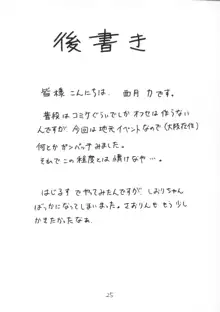 後書き
皆様こんにちは、西月力です。
普段はコミケぐらいでしかオフセは作らない
んですが、今回は地元イベントなので(大阪在住)
何とかガンバッテみました。
それでこの程度とは情けなや…。
はじるすでやってみたんですが、しおりちゃん
ばっかになってしまいました。さおりんももう少し
かきたかったなぁ。
25